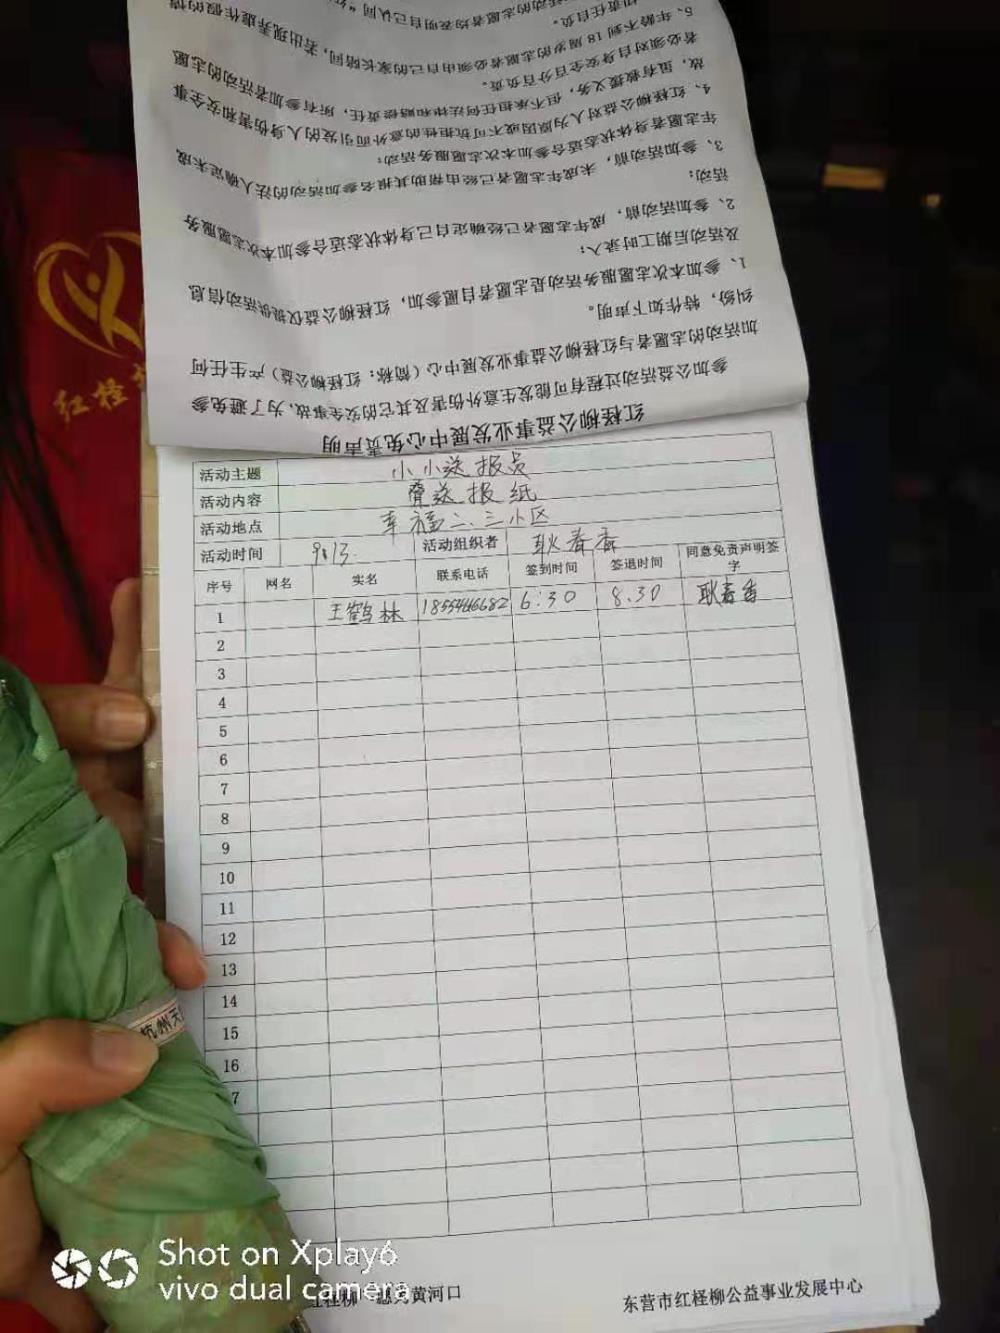 切责任自负。
5、年龄不到 18 周岁的志愿者必须由自己的家长陪同，若出现弄虚作假的情
者必须对自身安全百分百负责。
故，虽有救援义务，但不承担任何法律和赔偿责任，所有参加者活动的志愿
4、红柽柳公益对人为原因或不可抗拒性的意外而引发的人身伤害和安全事
年志愿者身体状态适合参加本次志愿服务活动；
3、参加活动前，未成年志愿者已经由帮助其报名参加活动的法人确定未成
活动；
2、参加活动前，成年志愿者已经确定自己身体状态适合参加本次志愿服务
及活动后期工时录入；
1、参加本次志愿服务活动是志愿者自愿参加，红柽柳公益仅提供活动信息
纠纷，特作如下声明。
加活动的志愿者与红柽柳公益事业发展中心（简称：红柽柳公益）产生任何
参加公益活动过程有可能发生意外伤害及其它的安全事故，为了避免参
红柽柳公益事业发展中心免责声明
红柽
活动主题 小小送报员
活动内容 叠送报纸
活动地点 幸福二、三小区
活动时间 9.13. 活动组织者 耿春香
序号 网名 实名 联系电话 签到时间 签退时间 同意免责声明签字
1 王鹤林 1855466682 6:30 8.30 耿春香
2
3
4
5
6
7
8
9
10
11
12
13
14
15
16
7
杭州天
Shot on Xplay6
vivo dual camera
红柽柳 黄河口
东营市红柽柳公益事业发展中心